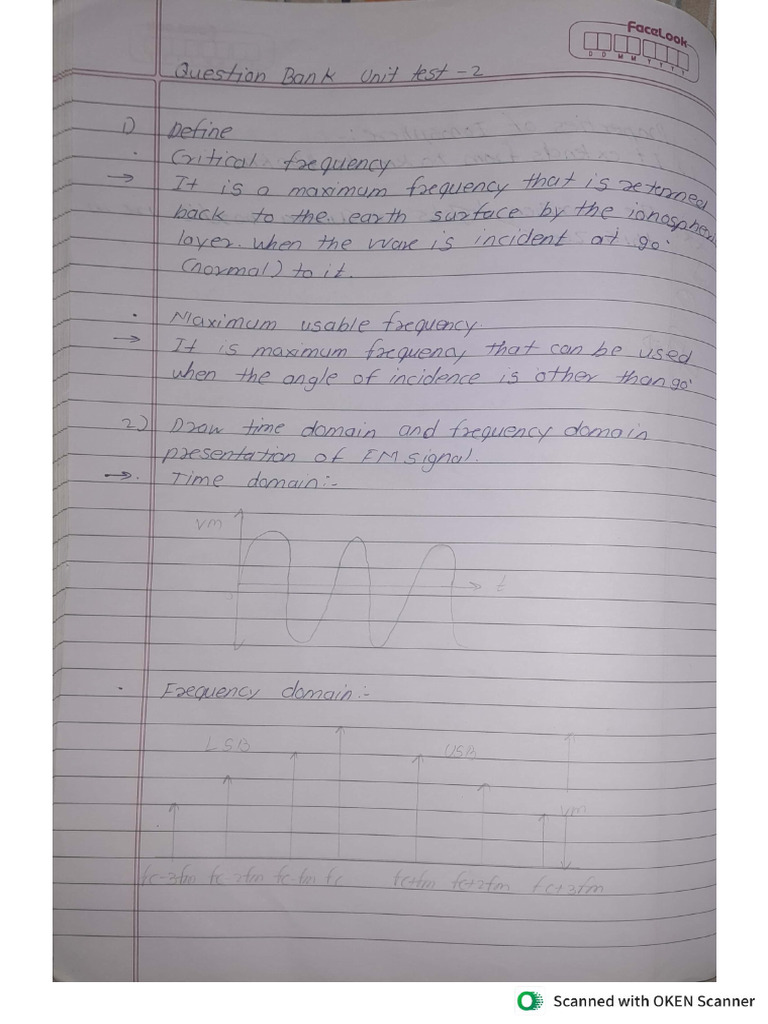 FaceLook
D D M M Y Y Y Y
Question Bank Unit test - 2
1) Define
· Critical frequency
→ It is a maximum frequency that is reterned
back to the earth surface by the ionosphere
layer. when the wave is incident at 90°
(normal) to it.
· Maximum usable frequency.
→ It is maximum frequency that can be used
when the angle of incidence is other than 90°
2) Draw time domain and frequency domain
presentation of FM signal.
→ · Time domain:-
Vm
t
· Frequency domain:-
LSB USB
Vm
fc-3fm fc-2fm fc-fm fc fc+fm fc+2fm fc+3fm
Scanned with OKEN Scanner